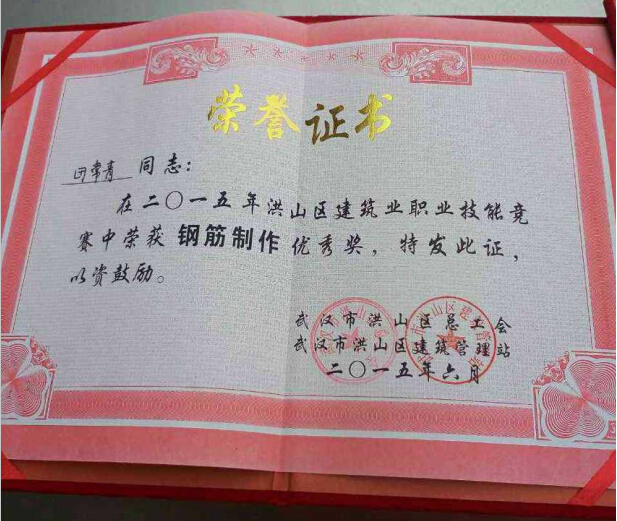 荣誉证书
田常青 同志：
在二〇一五年洪山区建筑业职业技能竞
赛中荣获 钢筋制作 优秀奖，特发此证，
以资鼓励。
武汉市洪山区总工会
武汉市洪山区建筑管理站
二〇一五年六月